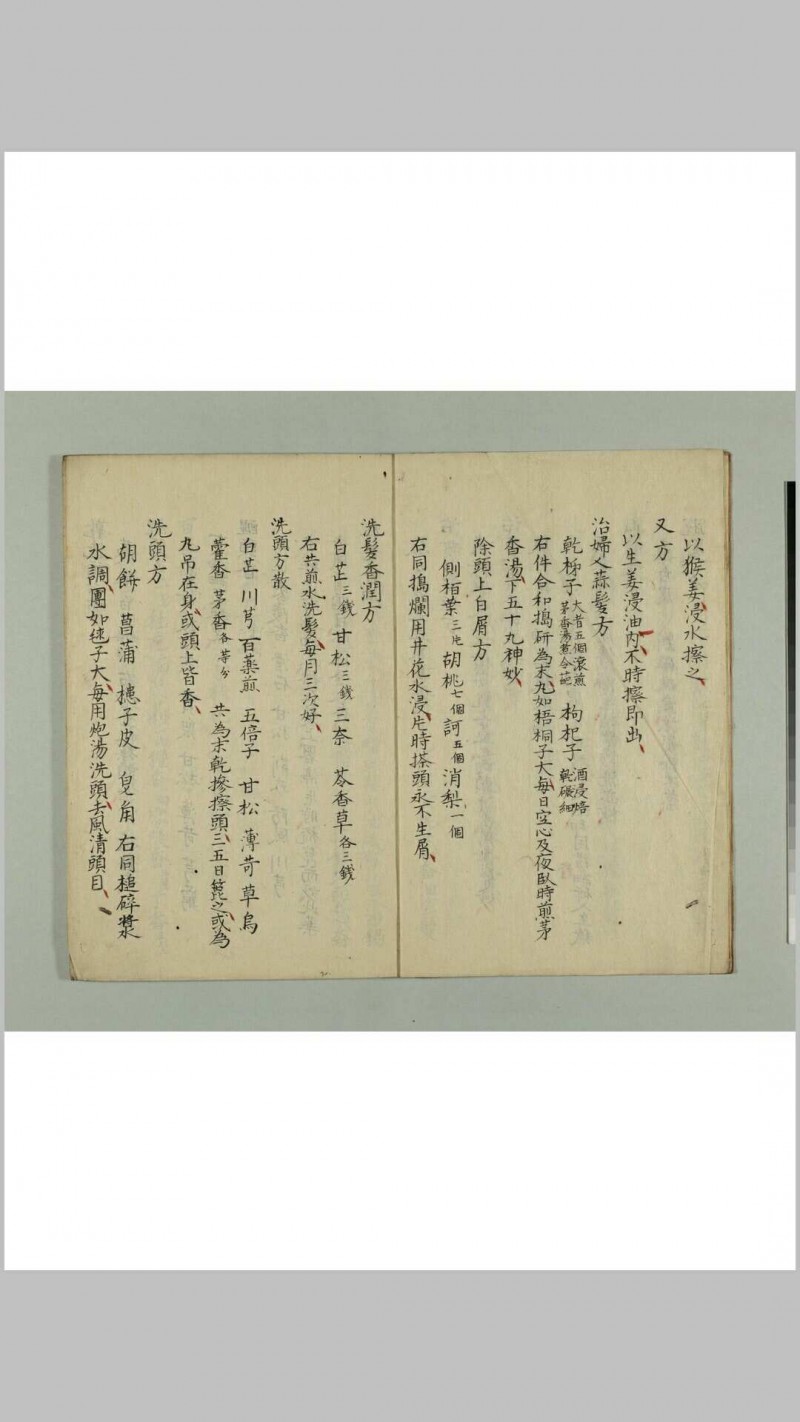 以猴姜浸水擦之
又方
以生姜浸油內不時擦即出
治婦人蒜髮方
乾柹子大者五個滾煎茅香湯煮令葩 枸杞子酒浸焙乾碾細
右件合和搗研為末丸如梧桐子大每日空心及夜臥時煎茅
香湯下五十丸神妙
除頭上白屑方
側栢葉三片 胡桃七個 訶五個 消梨一個
右同搗爛用井花水浸片時搽頭永不生屑
洗髮香潤方
白芷三錢 甘松三錢 三奈 苓香草各三錢
右共煎水洗髮每月三次好
洗頭方散
白芷 川芎 百藥煎 五倍子 甘松 薄苛 草烏
藿香 茅香各等分 共為末乾摻擦頭三五日篦之或為
丸吊在身或頭上皆香
洗頭方
胡餅 菖蒲 槵子皮 皂角 右同槌碎漿
水調團如毬子大每用炮湯洗頭去風清頭目